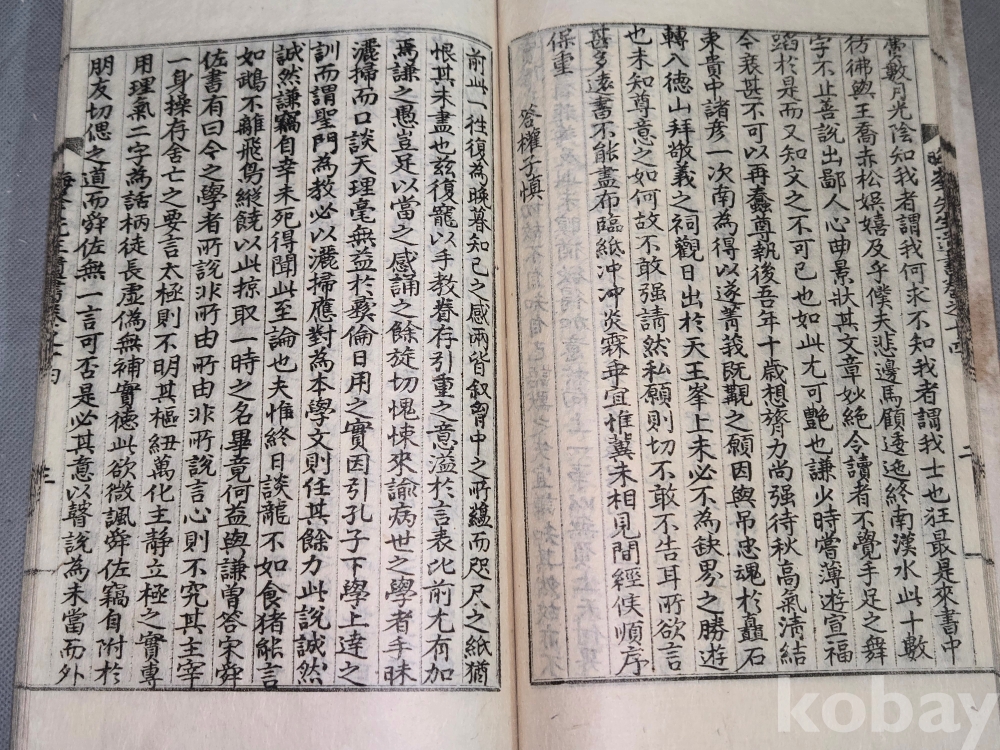 嘗數月光陰知我者謂我何求不知我者謂我士也狂最是來書中
彷彿與王喬赤松娛嬉及乎僕夫悲邊馬顧逶迤終南漢水此十數
字不止善說出鄙人心曲景狀其文章妙絶令讀者不覺手足之舞
蹈於是而又知文之不可已也如此尤可艶也謙少時嘗薄遊宣福
今衰甚不可以再蠢尊執後吾年十歲想膂力尚强待秋高氣淸結
東貴中諸彦一次南爲得以遂菁莪旣覯之願因與吊忠魂於矗石
轉八德山拜敬義之祠觀日出於天王峯上未必不為缺界之勝遊
也未知尊意之如何故不敢强請然私願則切不敢不告耳所欲言
甚多遠書不能盡布臨紙冲冲炎霖冞宜惟冀未相見間經俠順序
保重
答權子愼
前此一徃復為晚暮知已之感兩皆叙胷中之所蘊而咫尺之紙猶
恨其未盡也玆復寵以手教眷存引重之意溢於言表比前尤有加
焉謙之愚豈足以當之感誦之餘旋切愧悚來諭病世之學者手昧
灑掃而口談天理毫無益於彛倫日用之實因引孔子下學上達之
訓而謂聖門為教必以灑掃應對為本學文則任其餘力此說誠然
誠然謙竊自幸未死得聞此至論也夫惟終日談龍不如食猪能言
如鵡不離飛鳥縱饒以此掠取一時之名畢竟何益與謙曽答宋舜
佐書有曰今之學者所說非所由所由非所說言心則不究其主宰
一身操存舍亡之要言太極則不明其樞紐萬化主靜立極之實專
用理氣二字為話柄徒長虛僞無補實德此欲微諷舜佐竊自附於
朋友切偲之道而舜佐無一言可否是必其意以瞽說為未當而外
kobay